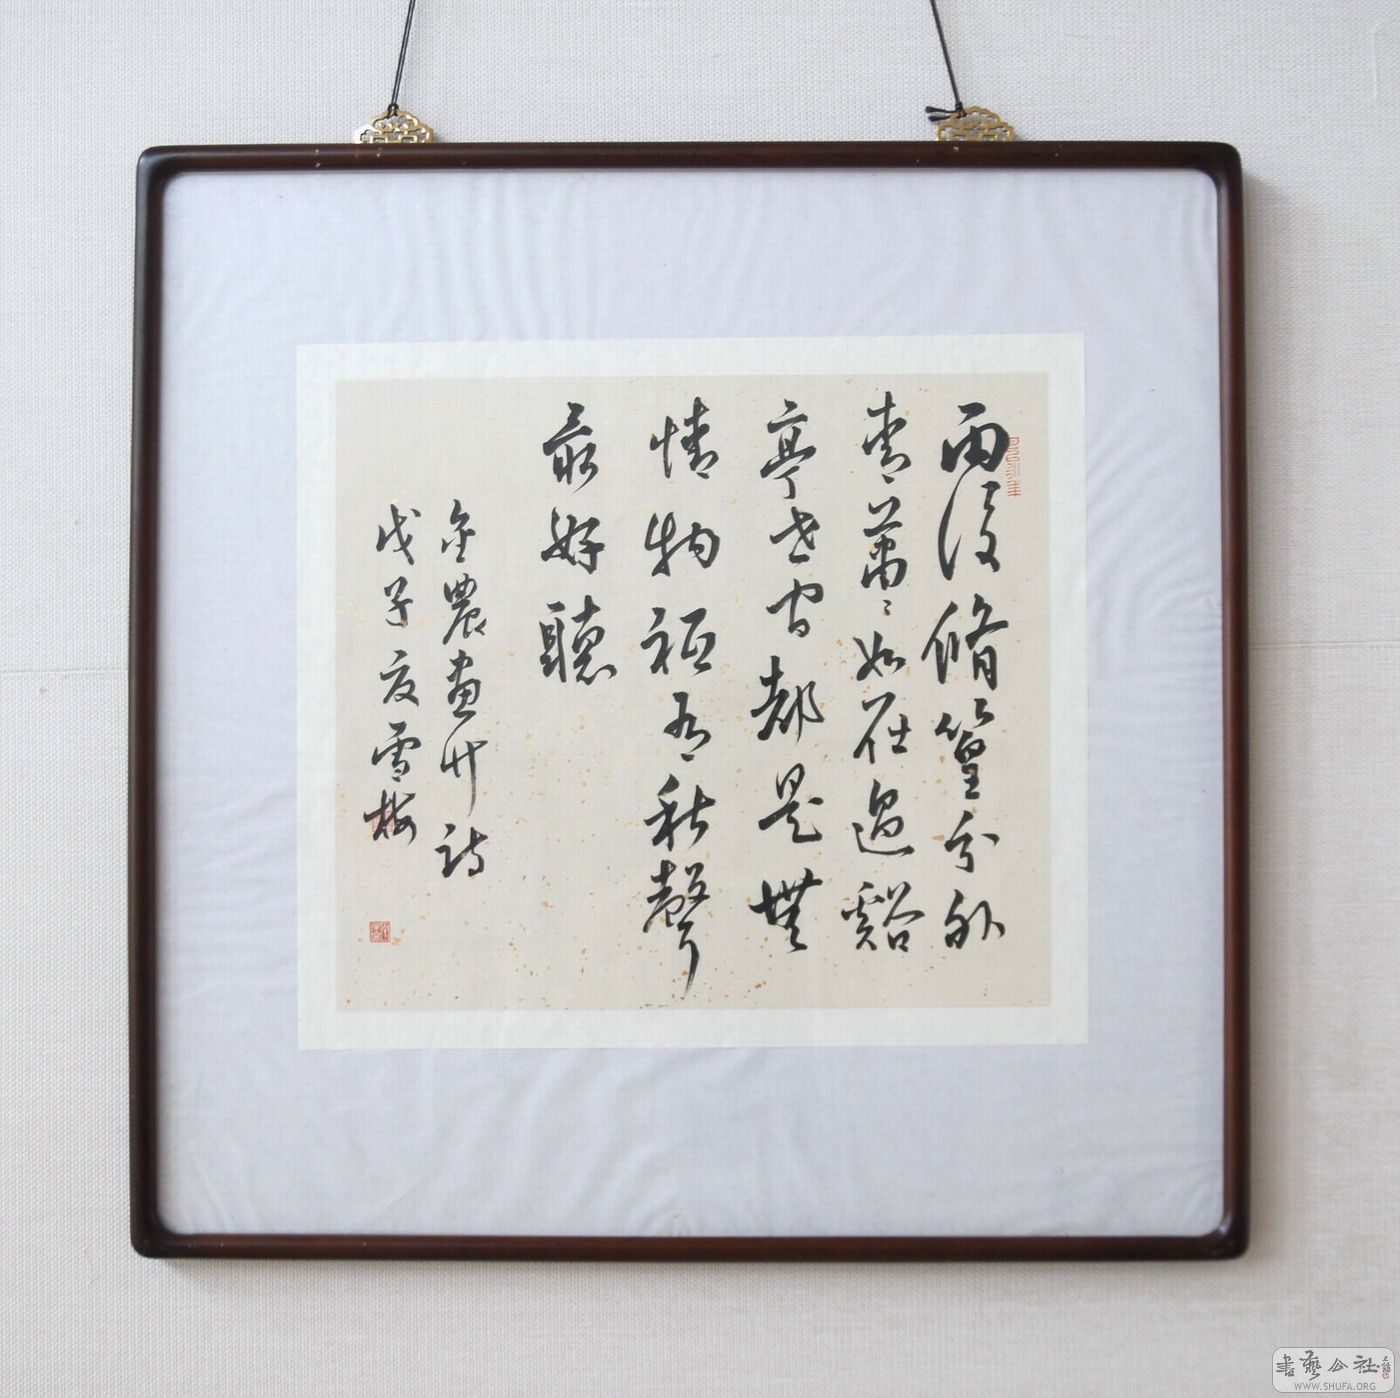 雨後脩篁分外
青蕭〻如在過谿
亭世間都是無
情物祗有秋聲
最好聽
金農畫竹詩
戊子夏雪梅
書藝公社
WWW.SHUFA.ORG